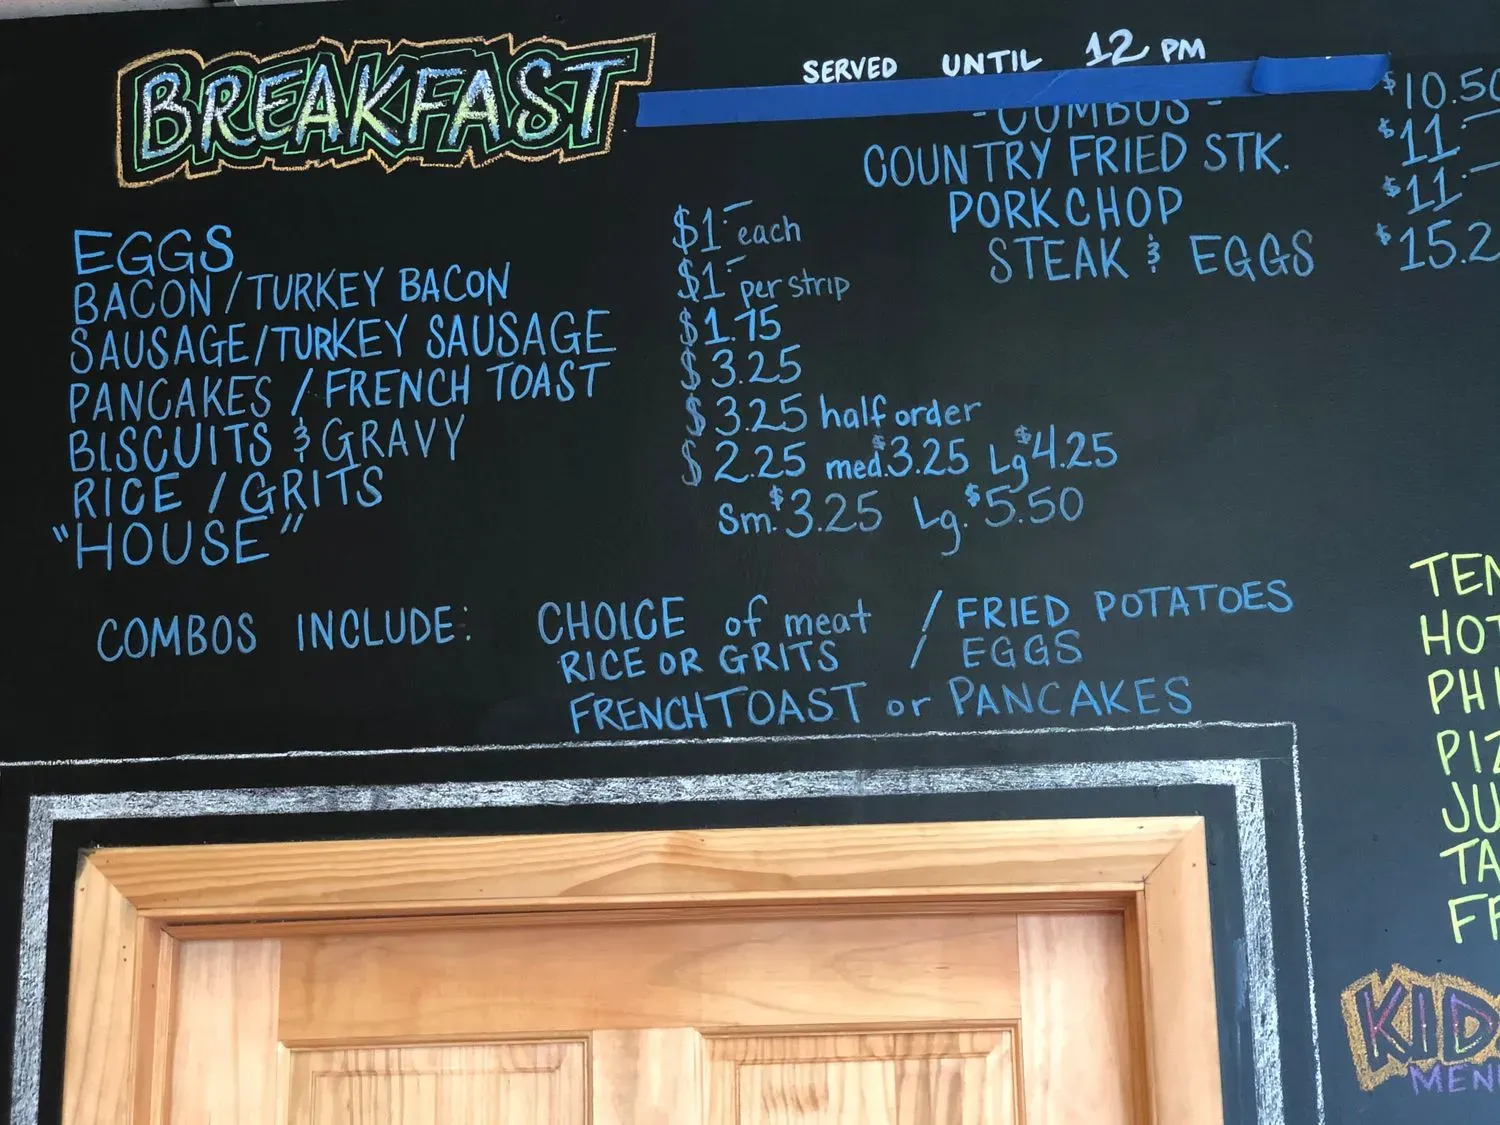 BREAKFAST
SERVED UNTIL 12 PM
- COMBOS - $10.50
COUNTRY FRIED STK. $11.-
PORKCHOP $11.-
STEAK & EGGS $15.2
EGGS $1.- each
BACON / TURKEY BACON $1.- per strip
SAUSAGE/TURKEY SAUSAGE $1.75
PANCAKES / FRENCH TOAST $3.25
BISCUITS & GRAVY $3.25 half order
RICE / GRITS $2.25 med. $3.25 Lg $4.25
"HOUSE" Sm. $3.25 Lg. $5.50
COMBOS INCLUDE: CHOICE of meat / FRIED POTATOES
RICE OR GRITS / EGGS
FRENCH TOAST or PANCAKES
TEN
HOT
PHI
PIZ
JU
TA
FR
KID
MEN